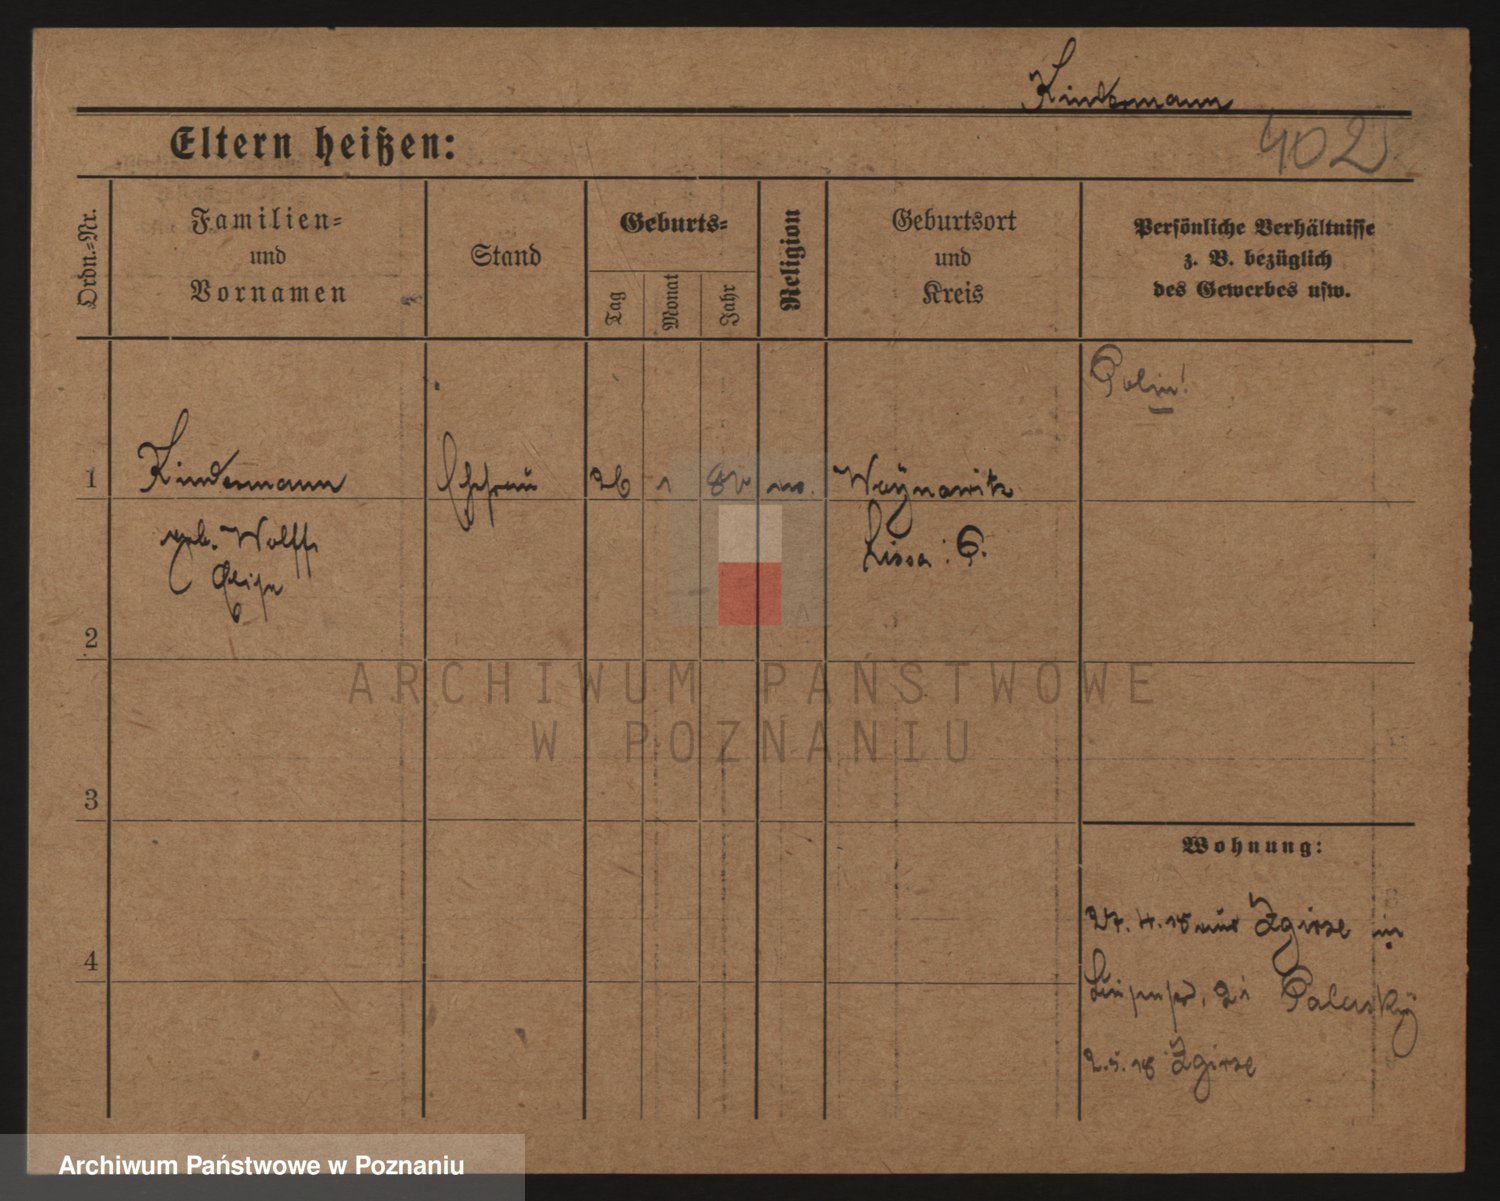 Kindermann
402
Eltern heißen:
Ordn.-Nr.
Familien-
und
Vornamen
Stand
Geburts-
Tag
Monat
Jahr
Religion
Geburtsort
und
Kreis
Persönliche Verhältnisse
z. B. bezüglich
des Gewerbes usw.
Polin!
1
Kindermann
Ehefrau
26
1
Woynowitz
geb. Wolff
Lissa i. P.
2
ARCHIWUM PAŃSTWOWE
W POZNANIU
3
Wohnung:
27. 4. 18 aus Zgirze in
4
21
2. 5. 18 Zgirze
Archiwum Państwowe w Poznaniu